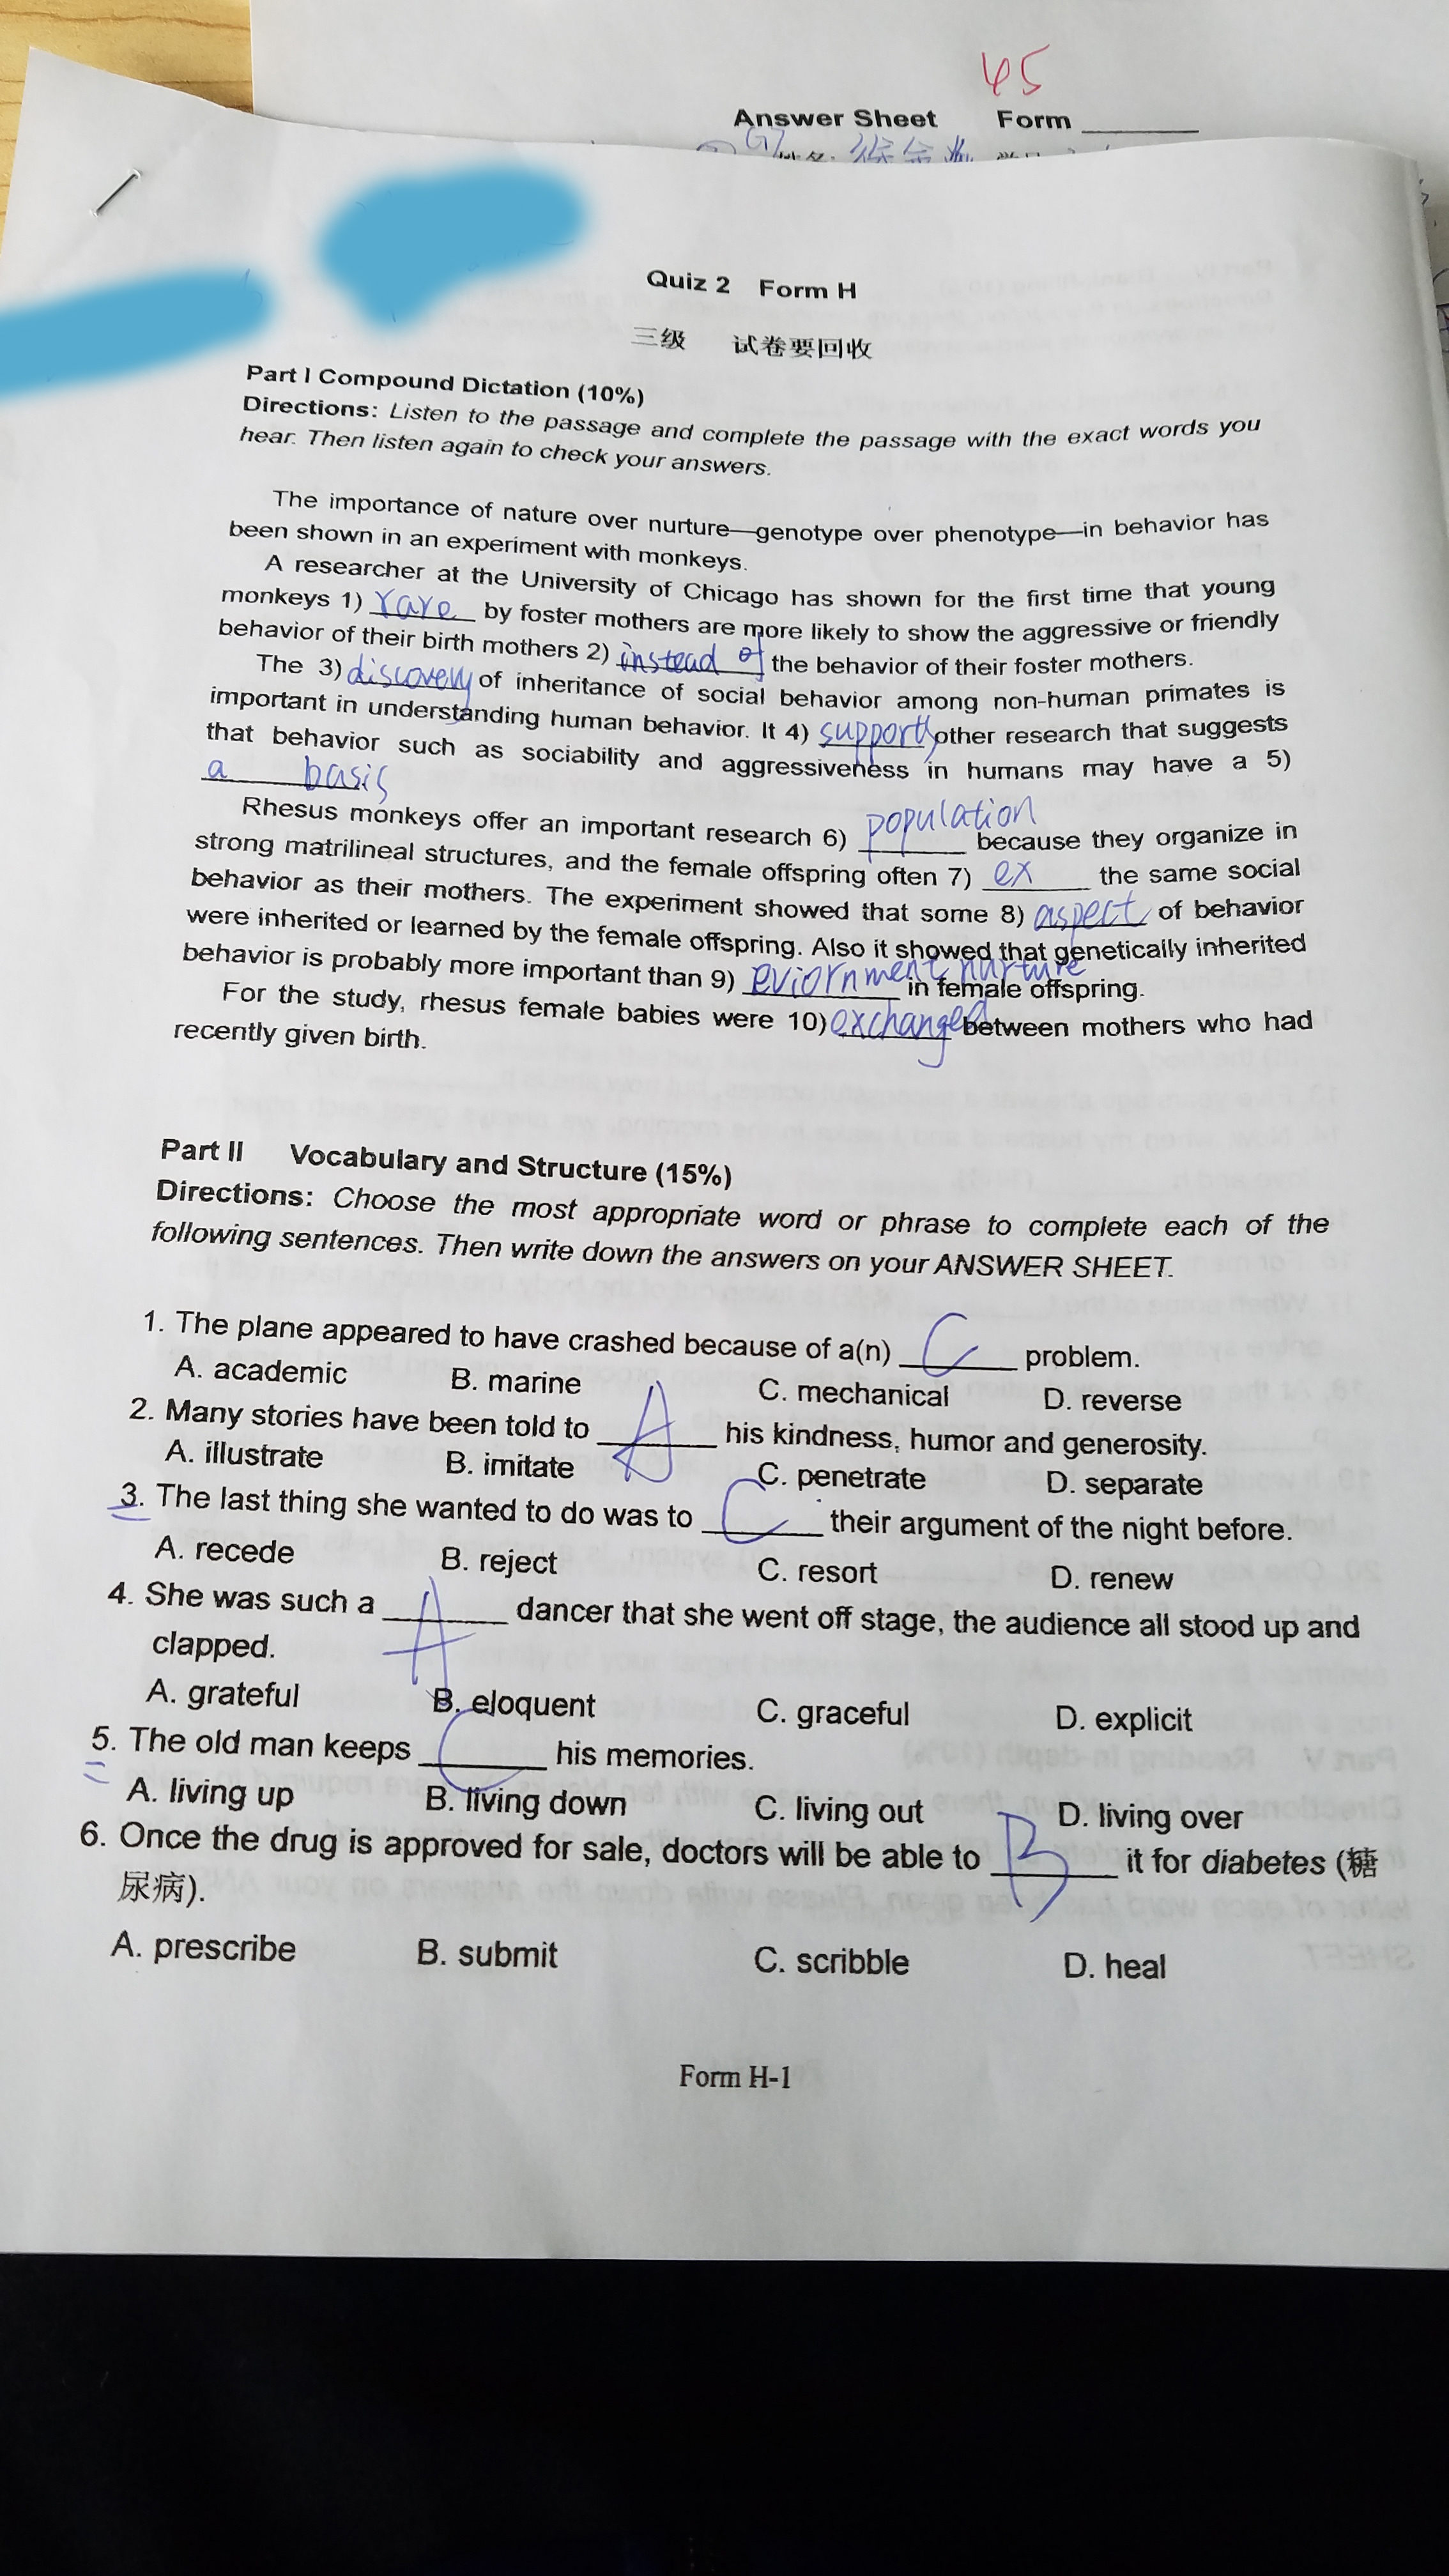 45
Answer Sheet Form ______
Quiz 2 Form H
三级 试卷要回收
Part I Compound Dictation (10%)
Directions: Listen to the passage and complete the passage with the exact words you
hear. Then listen again to check your answers.
The importance of nature over nurture—genotype over phenotype—in behavior has
been shown in an experiment with monkeys.
A researcher at the University of Chicago has shown for the first time that young
monkeys 1) rare by foster mothers are more likely to show the aggressive or friendly
behavior of their birth mothers 2) instead of the behavior of their foster mothers.
The 3) discovery of inheritance of social behavior among non-human primates is
important in understanding human behavior. It 4) supports other research that suggests
that behavior such as sociability and aggressiveness in humans may have a 5)
a basis
Rhesus monkeys offer an important research 6) population because they organize in
strong matrilineal structures, and the female offspring often 7) ex the same social
behavior as their mothers. The experiment showed that some 8) aspect of behavior
were inherited or learned by the female offspring. Also it showed that genetically inherited
behavior is probably more important than 9) eviornment nurture in female offspring.
For the study, rhesus female babies were 10) exchanged between mothers who had
recently given birth.
Part II Vocabulary and Structure (15%)
Directions: Choose the most appropriate word or phrase to complete each of the
following sentences. Then write down the answers on your ANSWER SHEET.
1. The plane appeared to have crashed because of a(n) C problem.
A. academic B. marine C. mechanical D. reverse
2. Many stories have been told to A his kindness, humor and generosity.
A. illustrate B. imitate C. penetrate D. separate
3. The last thing she wanted to do was to C their argument of the night before.
A. recede B. reject C. resort D. renew
4. She was such a A dancer that she went off stage, the audience all stood up and
clapped.
A. grateful B. eloquent C. graceful D. explicit
5. The old man keeps C his memories.
A. living up B. living down C. living out D. living over
6. Once the drug is approved for sale, doctors will be able to B it for diabetes (糖
尿病).
A. prescribe B. submit C. scribble D. heal
Form H-1